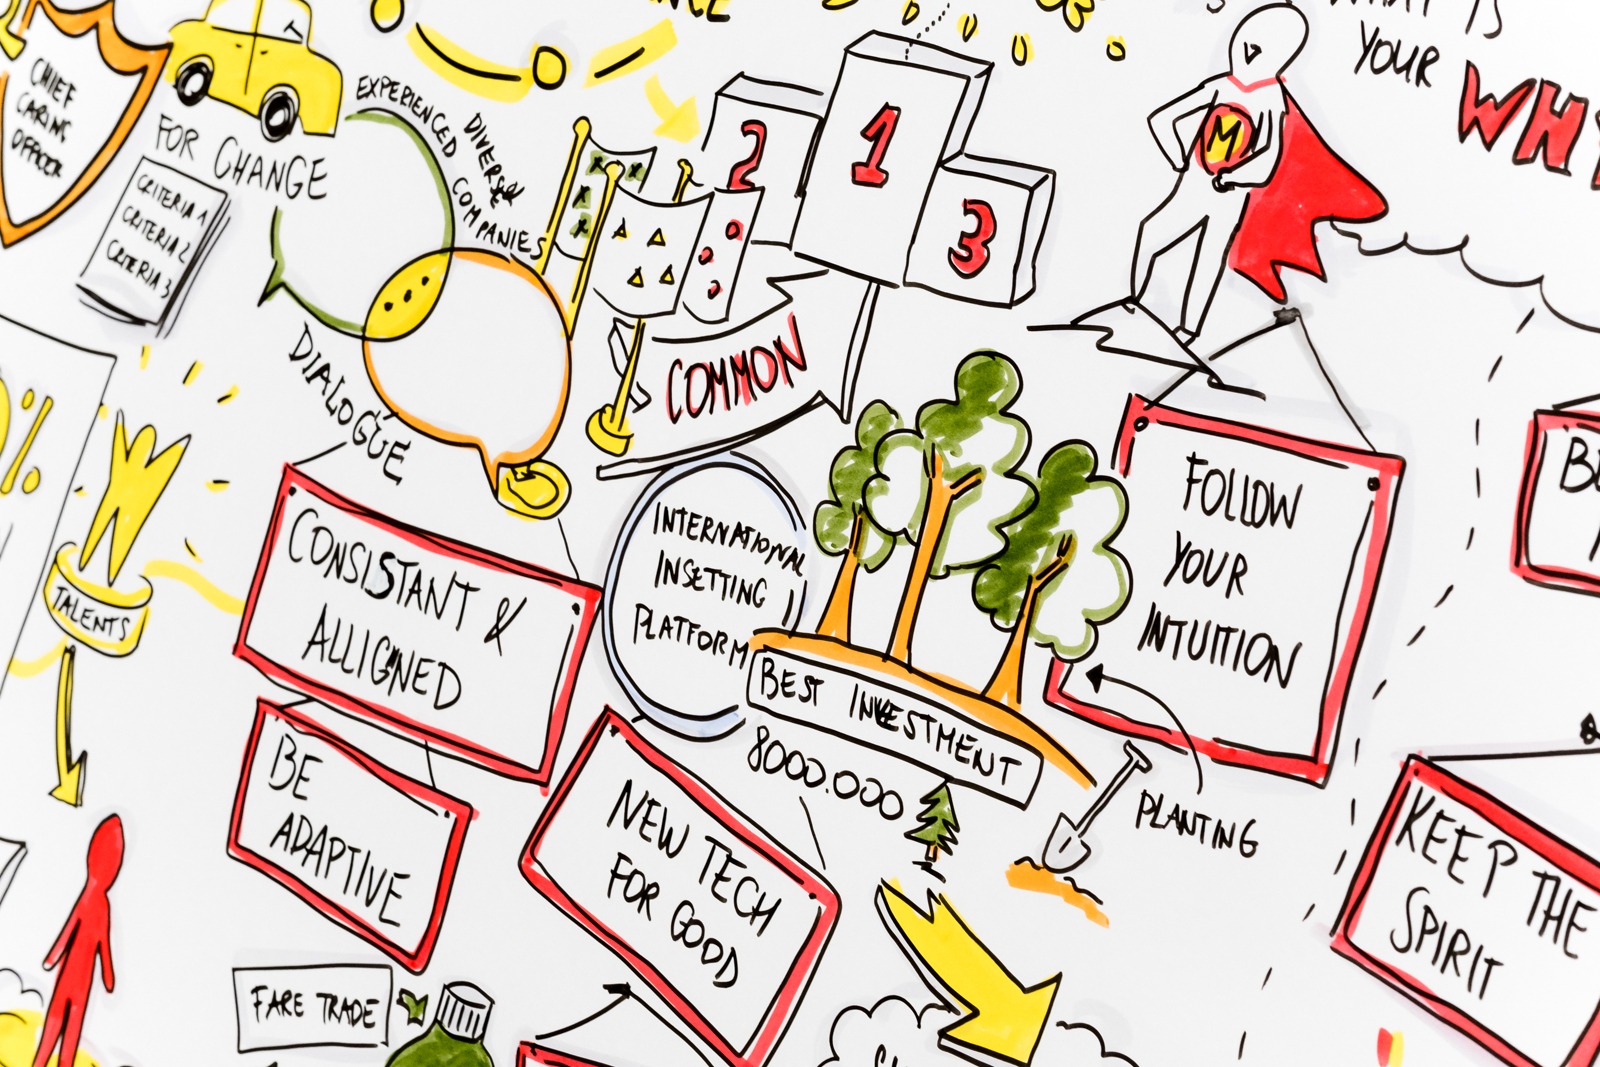 CHIEF
CARING
OFFICER
FOR CHANGE
CRITERIA 1
CRITERIA 2
CRITERIA 3
EXPERIENCED
DIVERSE
COMPANIES
DIALOGUE
2
1
3
COMMON
M
YOUR
WHY
%
TALENTS
CONSISTANT &
ALLIGNED
BE
ADAPTIVE
INTERNATIONAL
INSETTING
PLATFORM
BEST INVESTMENT
8000.000
PLANTING
FOLLOW
YOUR
INTUITION
NEW TECH
FOR GOOD
KEEP THE
SPIRIT
FARE TRADE